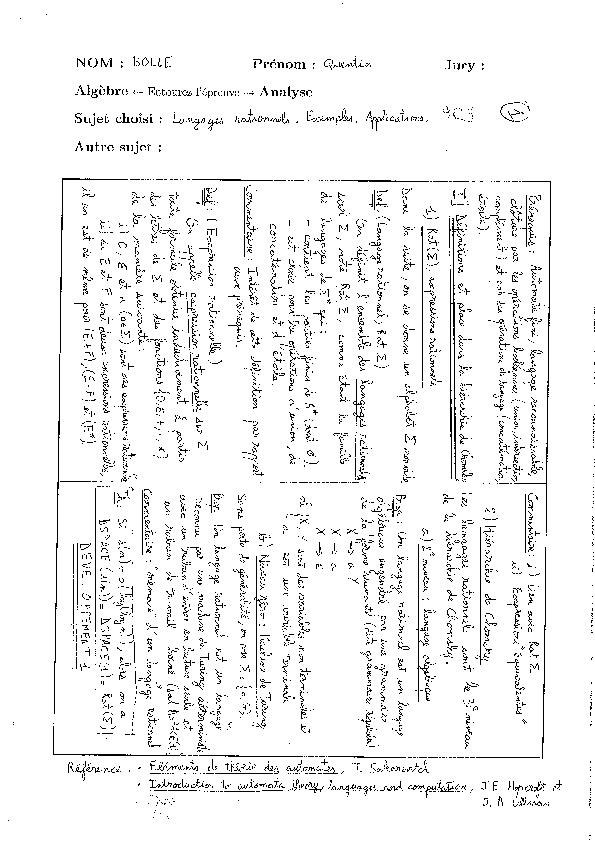 NOM : BOLLE Prénom : Quentin Jury :
Algèbre ← Entourez l'épreuve → Analyse
Sujet choisi : Langages rationnels. Exemples. Applications. 903 1
Autre sujet :
Prérequis : Automate fini, langage reconnaissable,
clôture par les opérations booléennes (union, intersection,
complément) et par les opérations de langage (concaténation,
étoile).
I) Définitions et place dans la hiérarchie de Chomsky
1) Rat(Σ), expressions rationnelles
Dans la suite, on se donne un alphabet Σ
Def (Langage rationnel, Rat Σ)
On définit l'ensemble des langages rationnels
sur Σ, noté Rat Σ, comme étant la famille
de langages de Σ* qui :
- contient les parties finies de Σ* (dont ∅)
- est close par les opérations d'union, de
concaténation et d'étoile
Commentaire : Intérêt de cette définition par rapport
aux prérequis.
Def (Expression rationnelle)
On appelle expression rationnelle sur Σ
toute formule obtenue inductivement à partir
des lettres de Σ et des fonctions
de la manière suivante :
i) 0, E et a (a∈Σ) sont des expressions rationnelles
ii) si E et F sont deux expressions rationnelles,
il en est de même pour (E+F), (E·F) et (E*)
Commentaire : i) Lien avec Rat Σ
ii) Expressions "équivalentes"
2) Hiérarchie de Chomsky
Les langages rationnels sont le 3e niveau
de la hiérarchie de Chomsky.
a) 2e niveau : langages algébriques
Prop : Un langage rationnel est un langage
algébrique engendré par une grammaire
de la forme suivante (dite grammaire régulière)
X → a Y
X → a
X → ε
où X, Y sont des variables non terminales et
a est une variable terminale
b) Niveau zéro : Machine de Turing
Sans perte de généralité, on pose Σ = {0, 1}.
Def Un langage rationnel est un langage
reconnu par une machine de Turing déterministe
avec un ruban d'entrée en lecture seule et
un ruban de travail borné
Commentaire : "mémoire" d'un langage rationnel
Th : Si s(n) = o(log(log n)), alors on a
DSPACE(s(n)) = DSPACE(1) = Rat(Σ)
DEVELOPPEMENT 1
Référence : - Eléments de théorie des automates, J. Sakarovitch
- Introduction to automata theory, languages and computation, J.E. Hopcroft et
J. D. Ullman